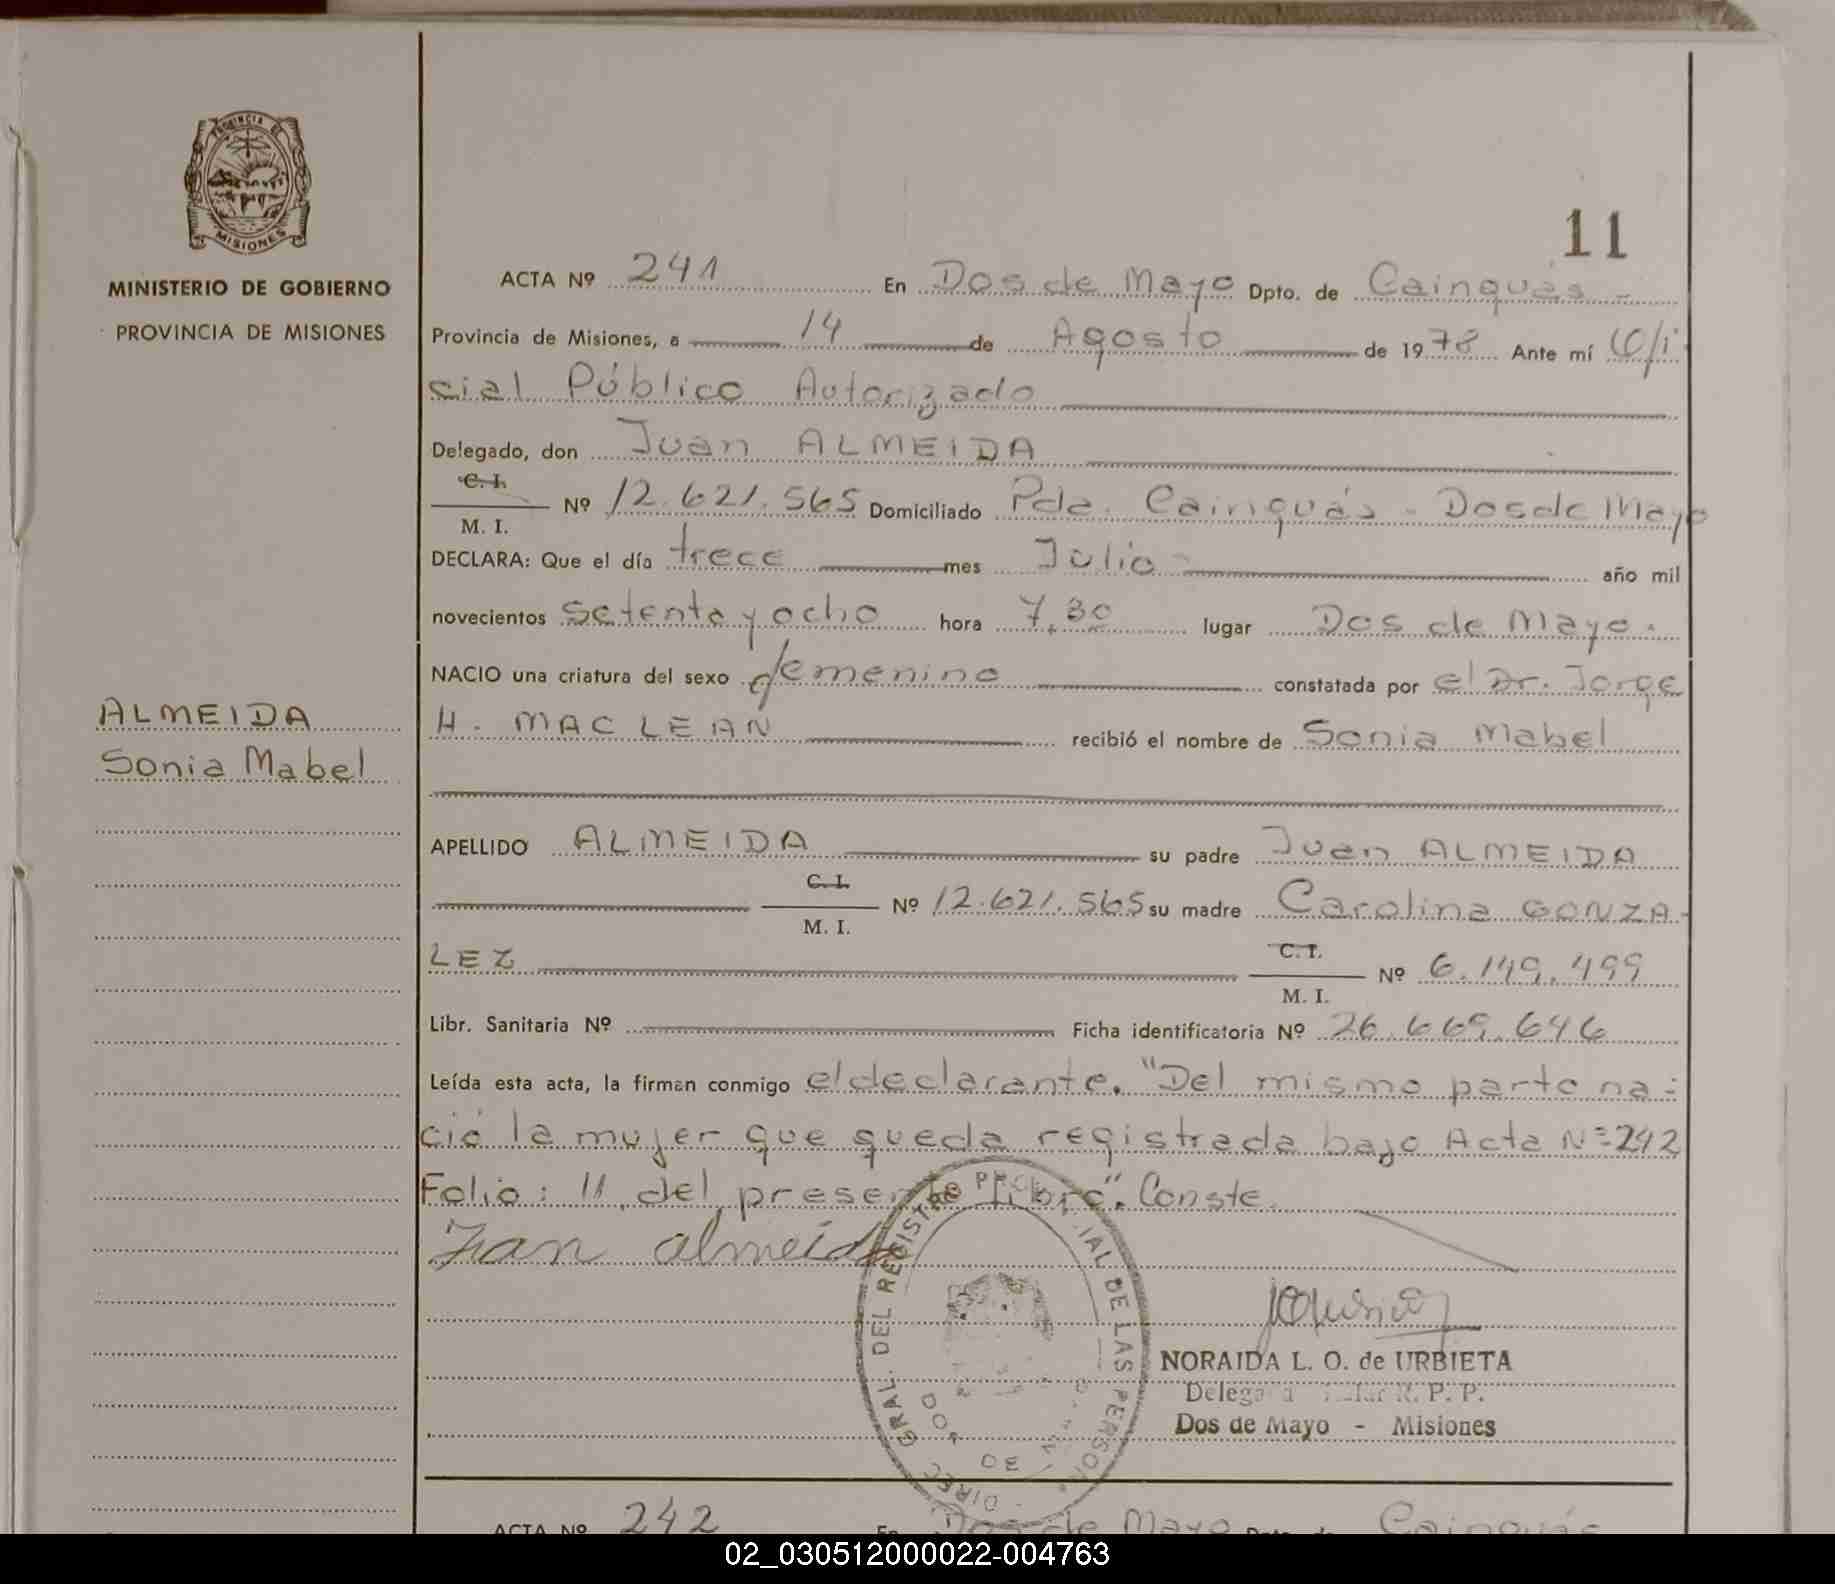 PROVINCIA DE
MISIONES
MINISTERIO DE GOBIERNO
PROVINCIA DE MISIONES
ALMEIDA
Sonia Mabel
11
ACTA Nº 241 En Dos de Mayo Dpto. de Cainguás -
Provincia de Misiones, a 14 de Agosto de 1978 Ante mí Ofi
cial Público Autorizado
Delegado, don Juan ALMEIDA
C. I.
M. I. Nº 12.621.565 Domiciliado Pda. Cainguás - Dos de Mayo
DECLARA: Que el día trece mes Julio - año mil
novecientos setenta y ocho hora 7,30 lugar Dos de Mayo.
NACIO una criatura del sexo femenino constatada por el Dr. Jorge
H. MAC LEAN recibió el nombre de Sonia Mabel
APELLIDO ALMEIDA su padre Juan ALMEIDA
C. I.
M. I. Nº 12.621.565 su madre Carolina GONZA-
LEZ C. I.
M. I. Nº 6.149.499
Libr. Sanitaria Nº Ficha identificatoria Nº 26.669.646
Leída esta acta, la firman conmigo el declarante. "Del mismo parto na=
ció la mujer que queda registrada bajo Acta Nº 242
Folio: 11 del presente libro". Conste.
Juan almeida
DIREC. GRAL. DEL REGISTRO PROVINCIAL DE LAS PERSONAS
NORAIDA L. O. de URBIETA
Delegada R. P. P.
Dos de Mayo - Misiones
ACTA Nº 242 En Dos de Mayo Dpto. de Cainguás
02_030512000022-004763